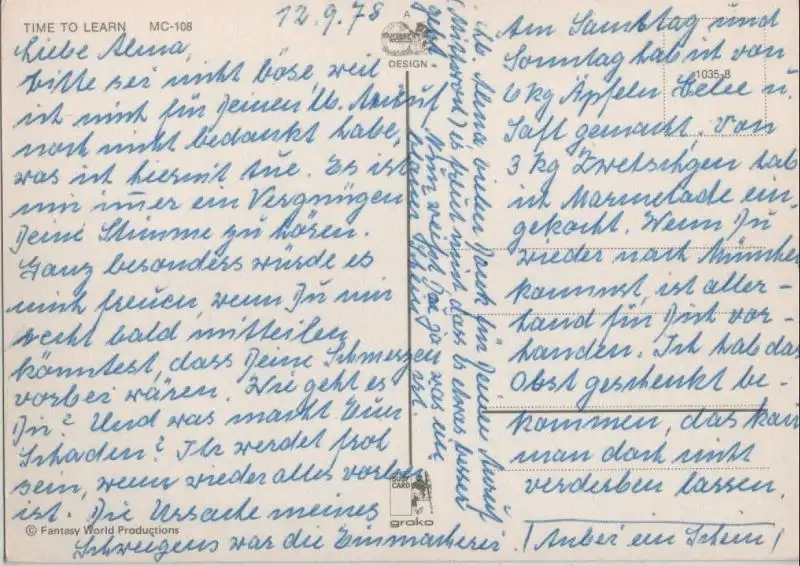 TIME TO LEARN MC-108
12.9.78
Liebe Alma,
bitte sei nicht böse, weil
ich mich für Deinen lb. Anruf
noch nicht bedankt habe,
was ich hiermit tue. Es ist
mir immer ein Vergnügen
Deine Stimme zu hören.
Ganz besonders würde es
mich freuen, wenn Du mir
recht bald mitteilen
könntest, dass Deine Schmerzen
vorbei wären. Wie geht es
Dir? Und was macht Euer
Schaden? Ihr werdet froh
sein, wenn wieder alles vorbei
ist. Die Ursache meines
Schweigens war die Einmacherei.
Am Samstag und
Sonntag hab ich von
6 kg Äpfeln Gelee u.
Saft gemacht, von
3 kg Zwetschgen hab
ich Marmelade ein-
gekocht. Wenn Du
wieder nach München
kommst, ist aller-
hand für Dich vor-
handen. Ich hab das
Obst geschenkt be-
kommen, das kann
man doch nicht
verderben lassen.
(Anbei ein Schein)
Lb. Alma, vielen Dank für Deinen Anruf
(Mittwoch) es freut mich das es etwas besser
geht. Nun weißt Du ja was im
ist.
A
FANTASY WORLD
DESIGN
1035-8
CARD
groko
© Fantasy World Productions